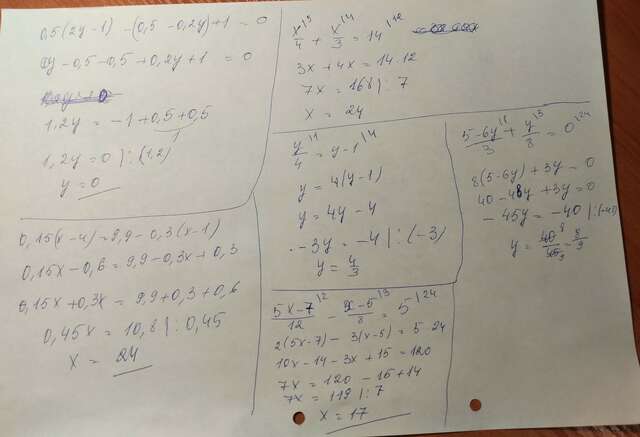 0,5(2y-1) - (0,5 - 0,2y)+1 = 0
y - 0,5 - 0,5 + 0,2y + 1 = 0
1,2y = -1 + 0,5 + 0,5
1
1,2y = 0 | : (1,2)
y = 0
0,15(x-4) = 9,9 - 0,3(x-1)
0,15x - 0,6 = 9,9 - 0,3x + 0,3
0,15x + 0,3x = 9,9 + 0,3 + 0,6
0,45x = 10,8 | : 0,45
x = 24
x/4 |3 + x/3 |4 = 14 |12
3x + 4x = 14 · 12
7x = 168 | : 7
x = 24
y/4 |1 = y-1 |4
y = 4(y-1)
y = 4y - 4
-3y = -4 | : (-3)
y = 4/3
5x-7/12 |2 - x-5/8 |3 = 5 |24
2(5x-7) - 3(x-5) = 5 · 24
10x - 14 - 3x + 15 = 120
7x = 120 - 15 + 14
7x = 119 | : 7
x = 17
5-6y/3 |8 + y/8 |3 = 0 |24
8(5-6y) + 3y = 0
40 - 48y + 3y = 0
-45y = -40 | : (-45)
y = 40/45 8/9 = 8/9